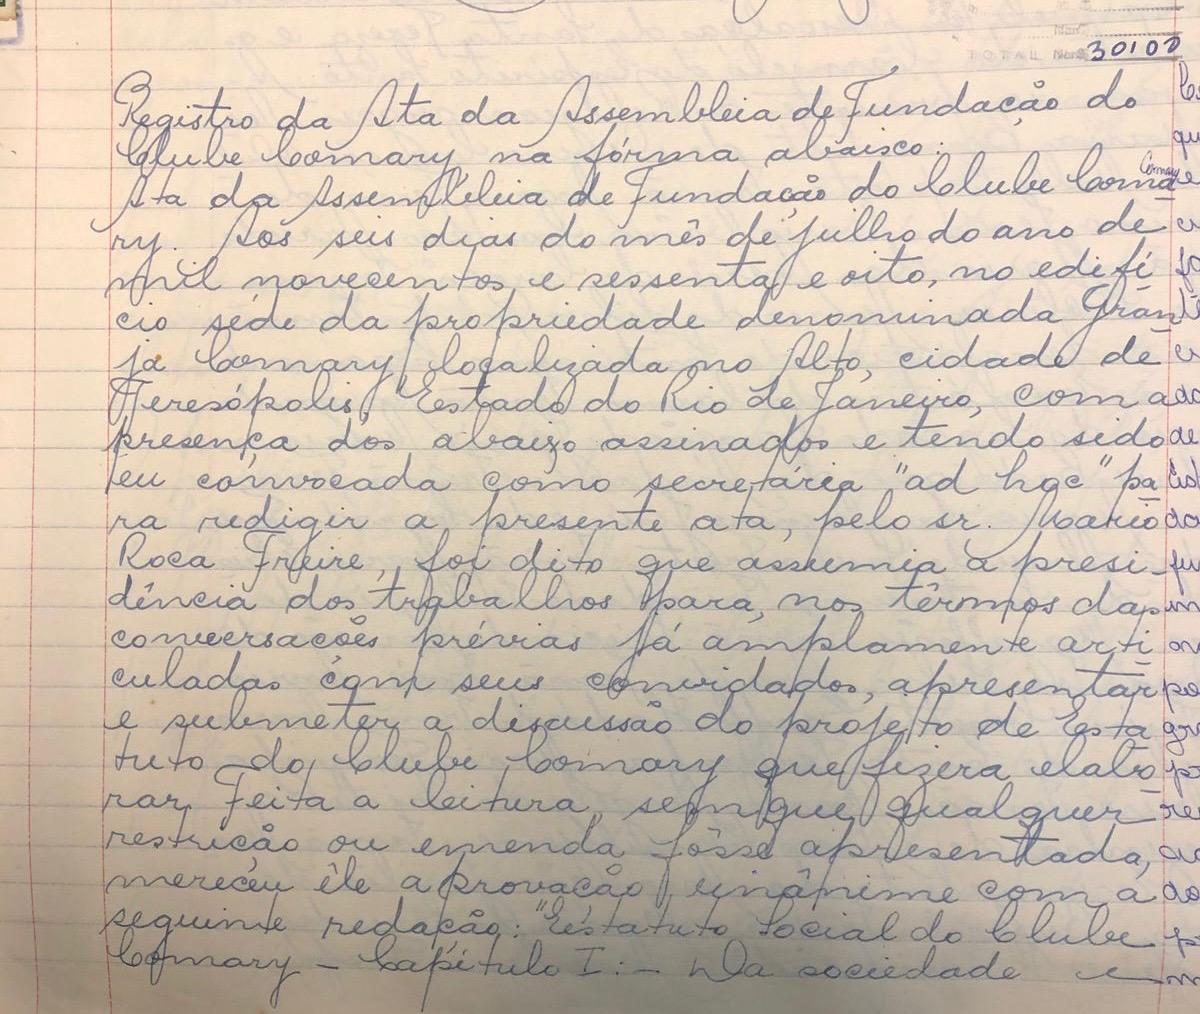 TOTAL
30100
Registro da Ata da Assembleia de Fundação do
Clube Comary, na fórma abaisco:
Ata da Assembleia de Fundação do Clube Coma
Comary
ry. Aos seis dias do mês de julho do ano de
mil novecentos e sessenta e oito, no edifí
cio séde da propriedade denominada Gran
ja Comary, localizada no Alto, cidade de
Teresópolis, Estado do Rio de Janeiro, com a
presença dos abaixo assinados e tendo sido
eu convocada como secretária "ad hoc" pa
ra redigir a presente ata, pelo sr. Mario
Roca Freire, foi dito que assumia a presi
dência dos trabalhos para, nos têrmos das
conversacões prévias já amplamente arti
culadas com seus convidados, apresentar
e submeter a discussão do projeto de Esta
tuto do Clube Comary que fizera elabo
rar. Feita a leitura, sem que qualquer
restrição ou emenda fôsse apresentada,
mereceu êle aprovação unânime com a
seguinte redação: "Estatuto Social do Clube
Comary - Capítulo I: - Da sociedade e